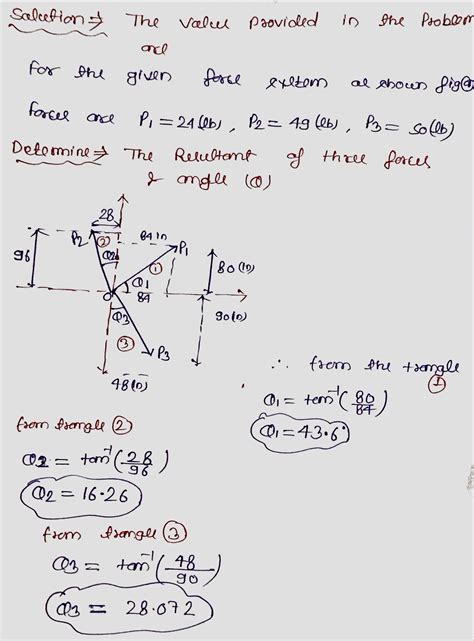 Solution ⇒ The value provided in the Problem
are
for the given force system as shown fig(a)
forces are P1 = 24 (lb), P2 = 49 (lb), P3 = 50 (lb)
Determine ⇒ The Resultant of three forces
& angle (θ)
28
P2
②
84 in
P1
96
θ2
①
80 (in)
O
θ1
84
θ3
90 (in)
③
P3
48 (in)
∴ from the triangle ①
θ1 = tan⁻¹(80/84)
θ1 = 43.6°
from triangle ②
θ2 = tan⁻¹(28/96)
θ2 = 16.26
from triangle ③
θ3 = tan⁻¹(48/90)
θ3 = 28.072